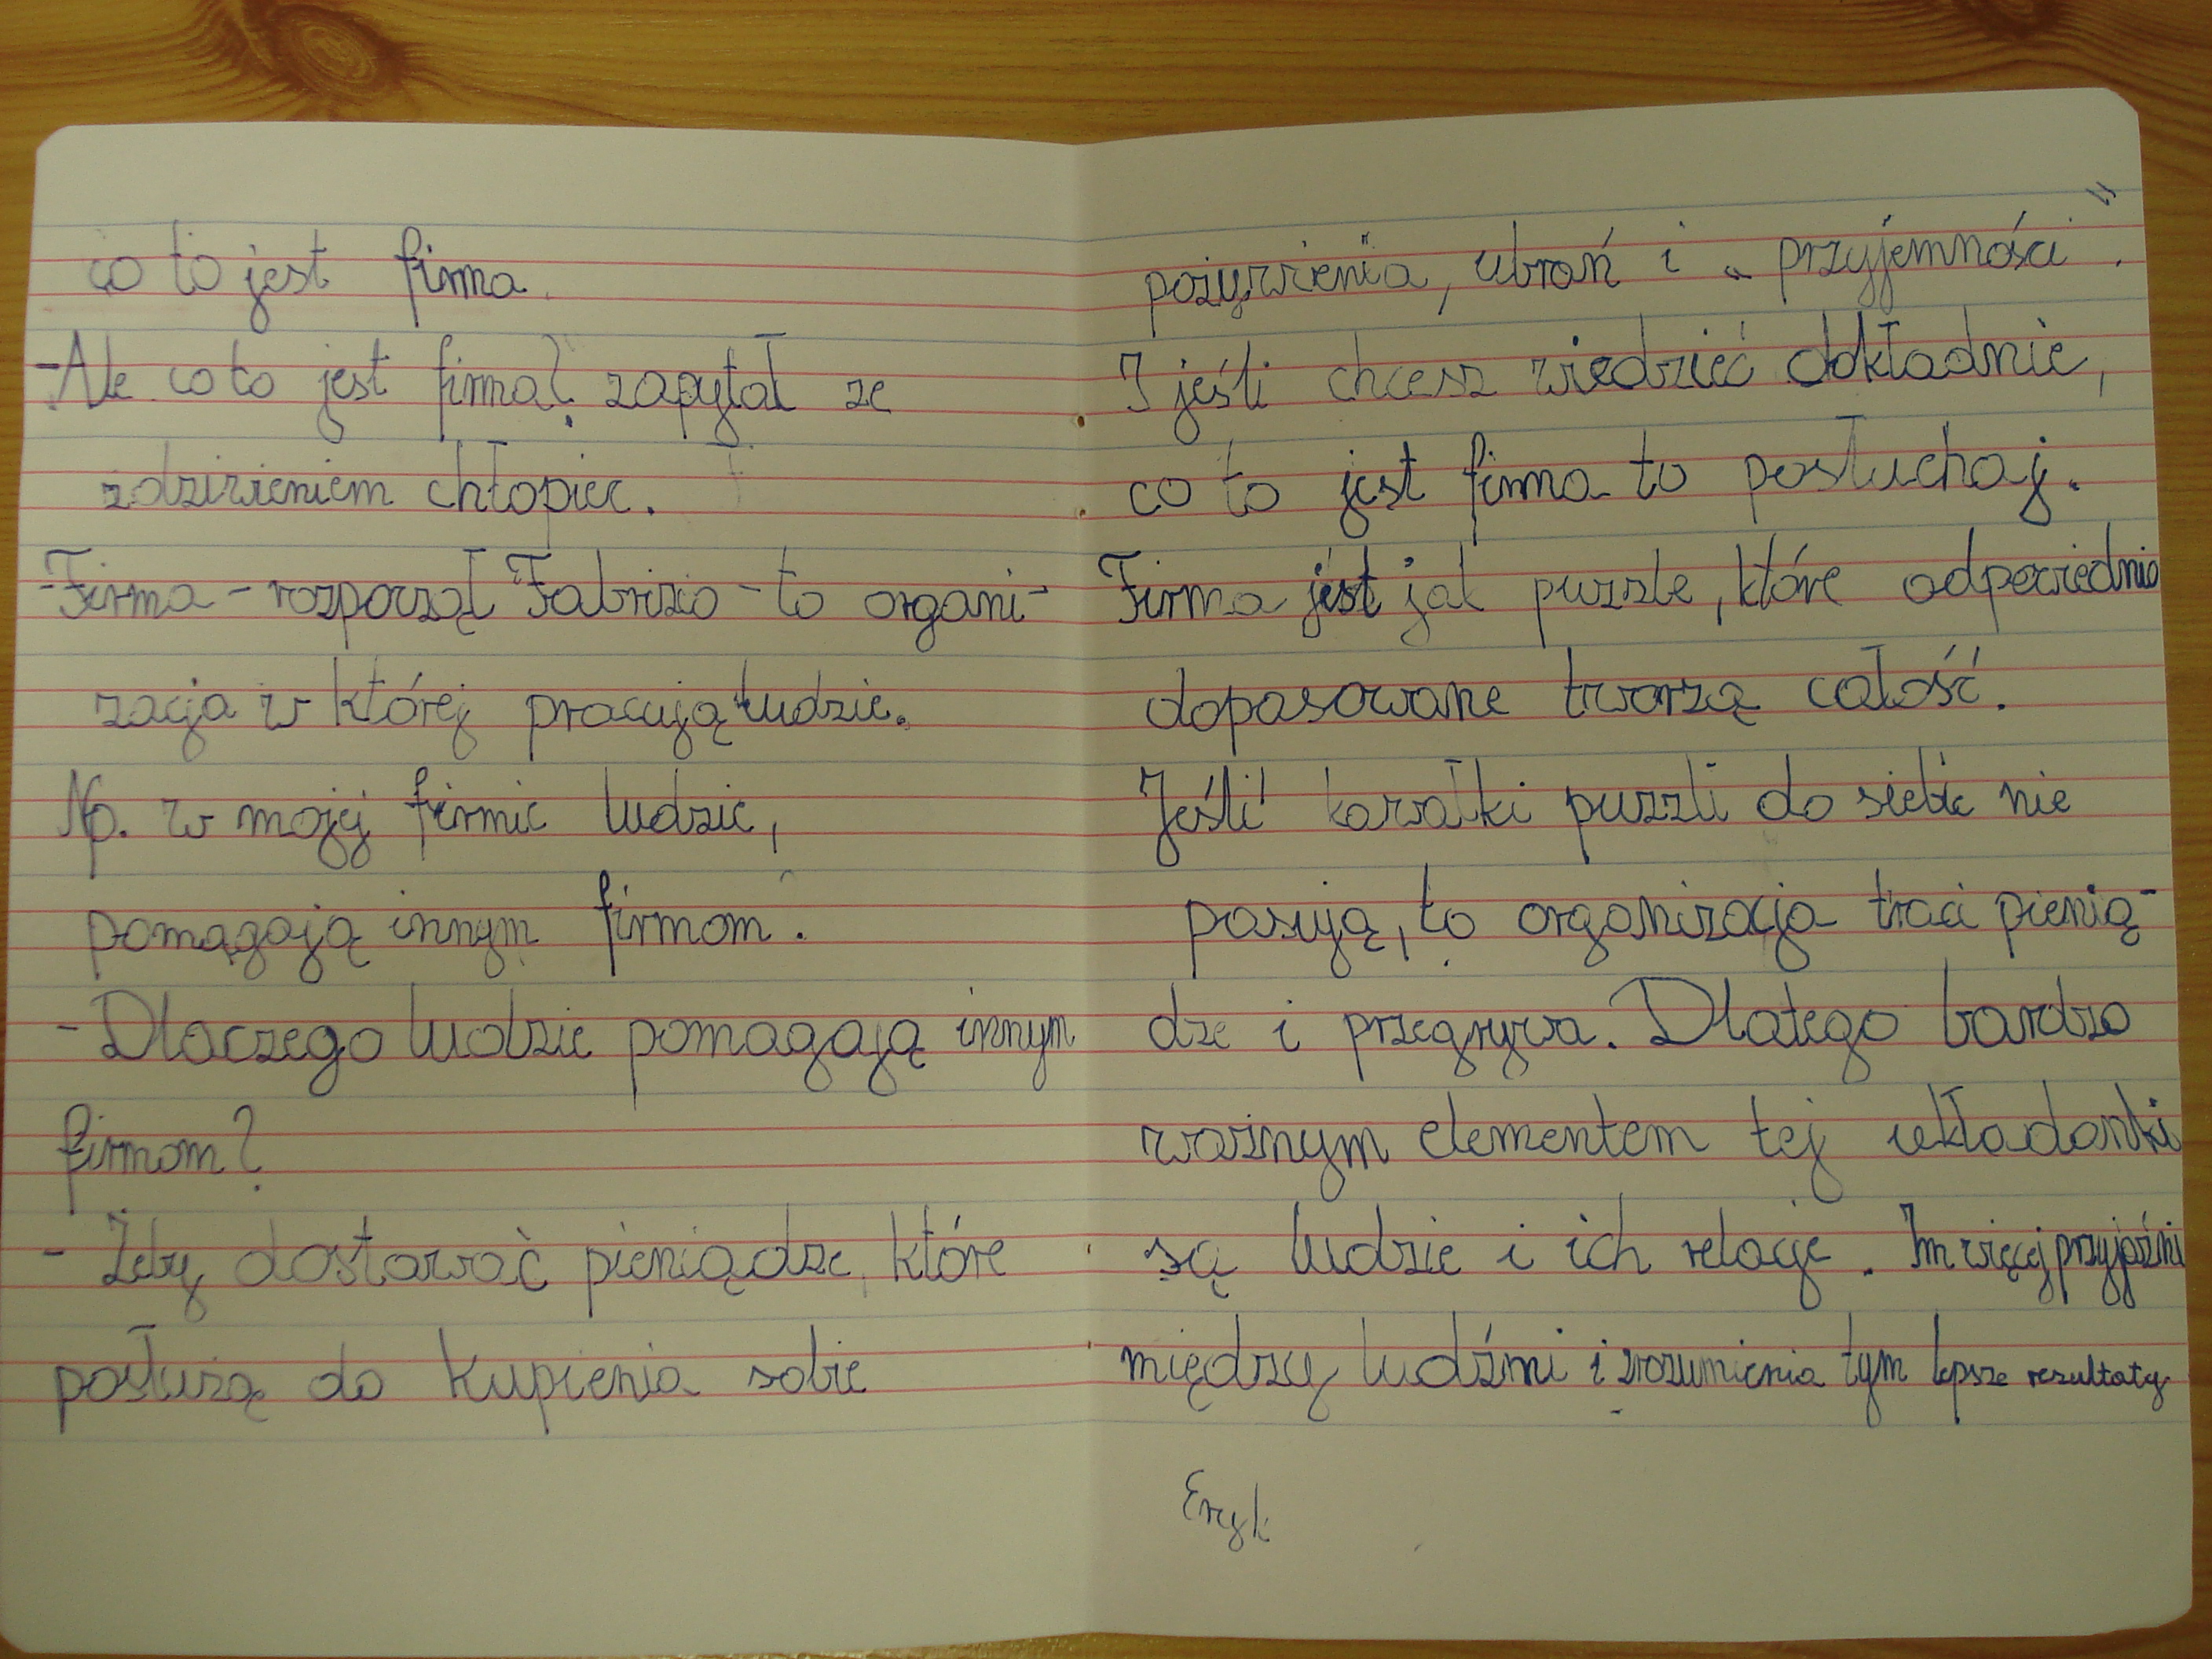 co to jest firma.
-Ale co to jest firma? zapytał ze
zdziwieniem chłopiec.
-Firma - rozpoczął Fabrizio - to organi-
zacja w której pracują ludzie.
Np. w mojej firmie ludzie,
pomagają innym firmom.
- Dlaczego ludzie pomagają innym
firmom?
- Żeby dostawać pieniądze, które
posłużą do kupienia sobie
pożywienia, ubrań i „przyjemności".
I jeśli chcesz wiedzieć dokładnie,
co to jest firma to posłuchaj.
Firma jest jak puzzle, które odpowiednio
dopasowane tworzą całość.
Jeśli kawałki puzzli do siebie nie
pasują, to organizacja traci pienią-
dze i przegrywa. Dlatego bardzo
ważnym elementem tej układanki
są ludzie i ich relacje. Im więcej przyjaźni
między ludźmi i zrozumienia tym lepsze rezultaty
Eryk